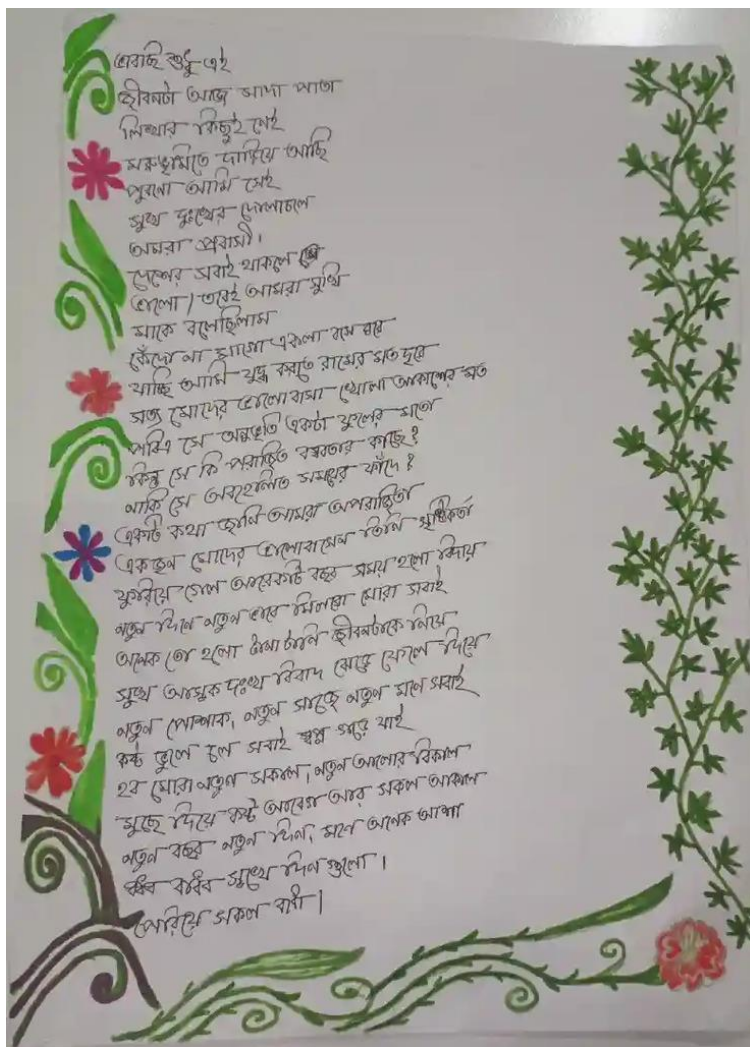 ভাবছি শুধু এই
জীবনটা আজ সাদা পাতা
লিখার কিছুই নেই
মরুভূমিতে দাড়িয়ে আছি
পুরনো আমি সেই
সুখ দুঃখের দোলাচলে
আমরা প্রবাসী।
দেশের সবাই থাকলে
ভালো। তবেই আমরা সুখি
মাকে বলেছিলাম
কেঁদো না মাগো একলা বসে ঘরে
যাচ্ছি আমি যুদ্ধ করতে রামের মত দূরে
সত্য মোদের ভালোবাসা খোলা আকাশের মত
পবিত্র সে অনুভূতি একটা ফুলের মতো
কিন্তু সে কি পরাজিত বর্বরতার কাছে?
নাকি সে অবহেলিত সময়ের ফাঁদে?
একটি কথা জানি আমরা অপরাজিতা
একজন মোদের ভালোবাসেন তিনি সৃষ্টিকর্তা
ফুরিয়ে গেল আরেকটি বছর সময় হলো বিদায়
নতুন দিনে নতুন ভাবে মিলবো মোরা সবাই
অনেক তো হলো টানা টানি জীবনটাকে নিয়ে
সুখ আসুক দুঃখ বিবাদ ঝেড়ে ফেলে দিয়ে
নতুন পোশাক, নতুন সাজে নতুন মনে সবাই
কষ্ট ভুলে চল সবাই স্বপ্ন গড়ে যাই
হব মোরা নতুন সকাল, নতুন আলোর বিকাল
মুছে দিয়ে কষ্ট আবেগ আর সকল আকাল
নতুন বছর নতুন দিন, মনে অনেক আশা
সুখে দিন গুলো।
পেরিয়ে সকল বাধা।